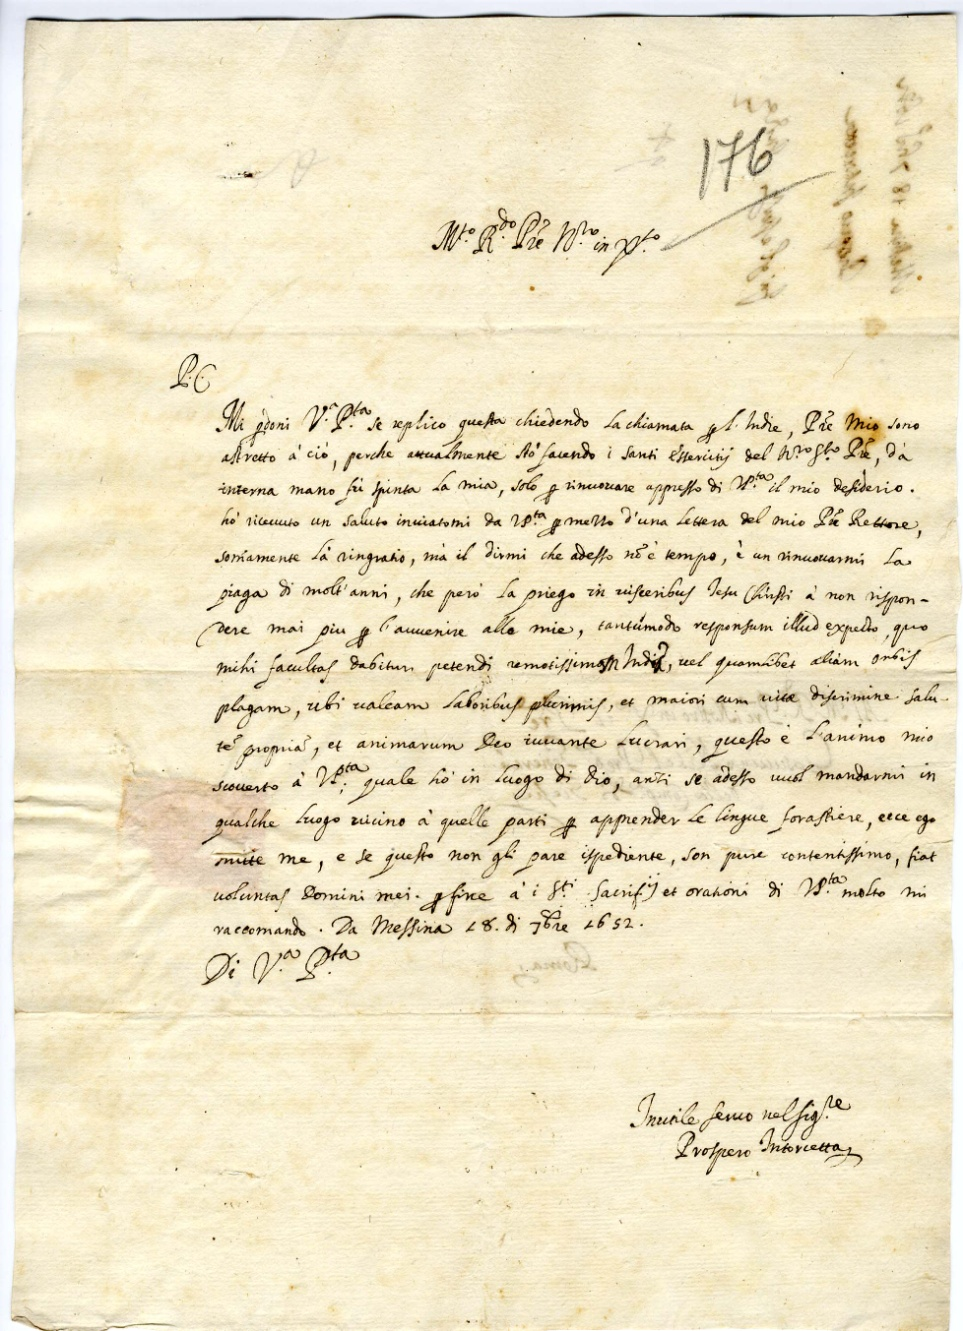 176
M.to R.do P̃re N.ro in X.to
P. C.
Mi p̱doni V.a P.ta se replico questa chiedendo la chiamata p̱ l'Indie, P̃re Mio sono
astretto à ciò, perche attualmente stò facendo i santi Essercitij del N.ro S.to P̃re, dà
interna mano fù spinta la mia, solo p̱ rinuovare appresso di V.P.ta il mio desiderio.
hò ricevuto un saluto inviatomi da V.P.ta p̱ mezzo d'una lettera del mio P̃re Rettore,
som̃amente la ringratio, mà il dirmi che adesso nõ è tempo, è un rinuovarmi la
piaga di molt'anni, che però la priego in visceribus Jesu Christi à non rispon-
dere mai piu p̱ l'avvenire alle mie, tantũmodo responsum illud expecto, quo
mihi facultas dabitur petendi remotissimam Indiã, vel quamlibet aliam orbis
plagam, ubi valeam laboribus plurimis, et maiori cum vitæ discrimine salu-
tẽ propriã, et animarum Deo iuvante lucrari, questo è l'animo mio
scoverto à V.P.ta quale hò in luogo di Dio, anzi se adesso vuol mandarmi in
qualche luogo vicino à quelle parti p̱ apprender le lingue forastiere, ecce ego
mitte me, e se questo non gli pare ispediente, son pure contentissimo, fiat
voluntas Domini mei. p̱ fine à i S.ti Sacrifij et orationi di V.P.ta molto mi
raccomando. Da Messina 18. di 7bre 1652.
Di V.a P.ta
Roma
Inutile servo nel Sig.re
Prospero Intorcetta